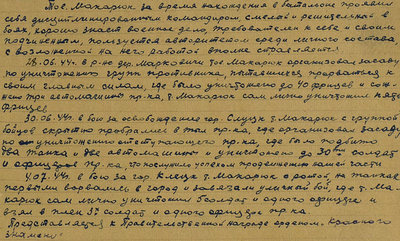 Тов. Макарюк за время нахождения в батальоне проявил
себя дисциплинированным командиром, смелой и решительной в
боях, хорошо знает военное дело, требователен к себе и своим
подчиненным, пользуется авторитетом среди личного состава
с возложенной на него работой вполне справляется.
28.06.44г. в р-не дер. Марковичи тов. Макарюк организовал засаду
по уничтожению групп противника, пытавшихся прорваться к
своим главным силам, где было уничтожено до 40 фрицев и сож-
жено три автомашины пр-ка, т. Макарюк сам лично уничтожил пять
фрицев.
30.06.44г. в бою за освобождение гор. Слуцк т. Макарюк с группой
бойцов скрытно пробрался в тыл пр-ка, где организовал засаду
по уничтожению отступающего пр-ка, где было подбито
два танка и две автомашины и уничтожено до солдат
и офицеров пр-ка что послужило успехом продвижения нашей части
4.07.44г. в бою за гор Клецк т. Макарюк с ротой, на танках
первыми ворвались в город и завязали уличной бой, где т. Ма-
карюк сам лично уничтожил солдат и одного офицера и
взял в плен солдат и одного офицера пр-ка.
Представляется к Правительственной награде орденом: Красного
Знамени.